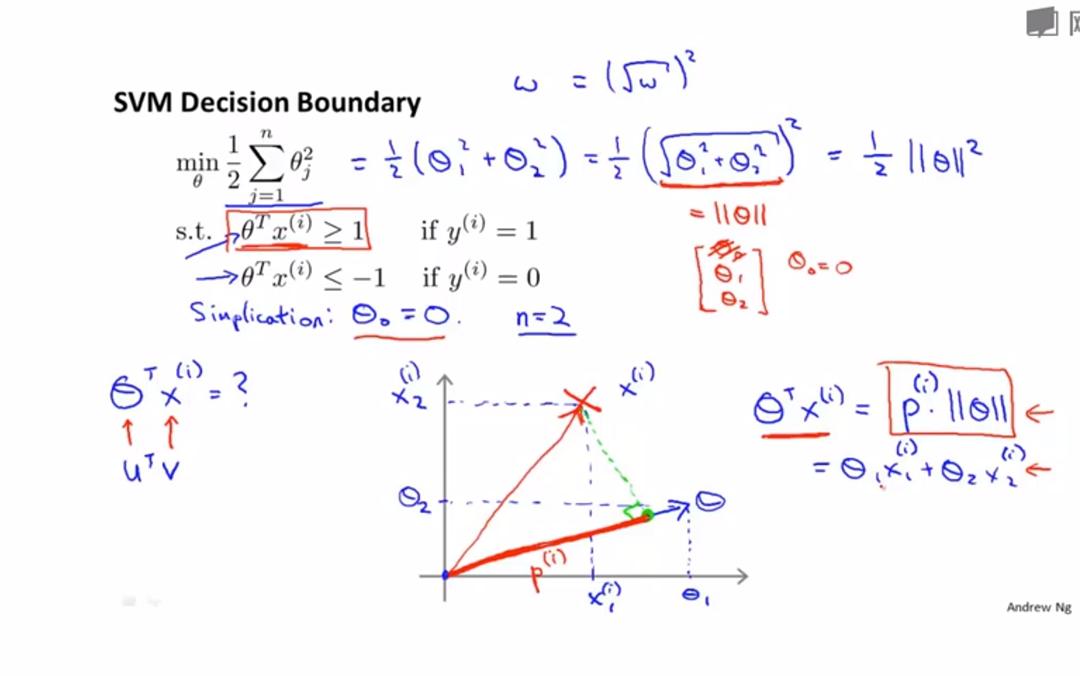 ω = (√ω)²
SVM Decision Boundary
min_θ 1/2 Σ_{j=1}^{n} θ_j² = 1/2 (θ₁² + θ₂²) = 1/2 (√(θ₁² + θ₂²))² = 1/2 ||θ||²
= ||θ||
s.t. θᵀx⁽ⁱ⁾ ≥ 1 if y⁽ⁱ⁾ = 1
→ θᵀx⁽ⁱ⁾ ≤ −1 if y⁽ⁱ⁾ = 0
[θ₁ θ₂] θ₀ = 0
Simplication: θ₀ = 0. n=2
θᵀx⁽ⁱ⁾ = ?
↑ ↑
uᵀv
x₂⁽ⁱ⁾
x⁽ⁱ⁾
θ₂
θ
p⁽ⁱ⁾
x₁⁽ⁱ⁾
θ₁
θᵀx⁽ⁱ⁾ = p⁽ⁱ⁾ · ||θ|| ←
= θ₁x₁⁽ⁱ⁾ + θ₂x₂⁽ⁱ⁾ ←
Andrew Ng